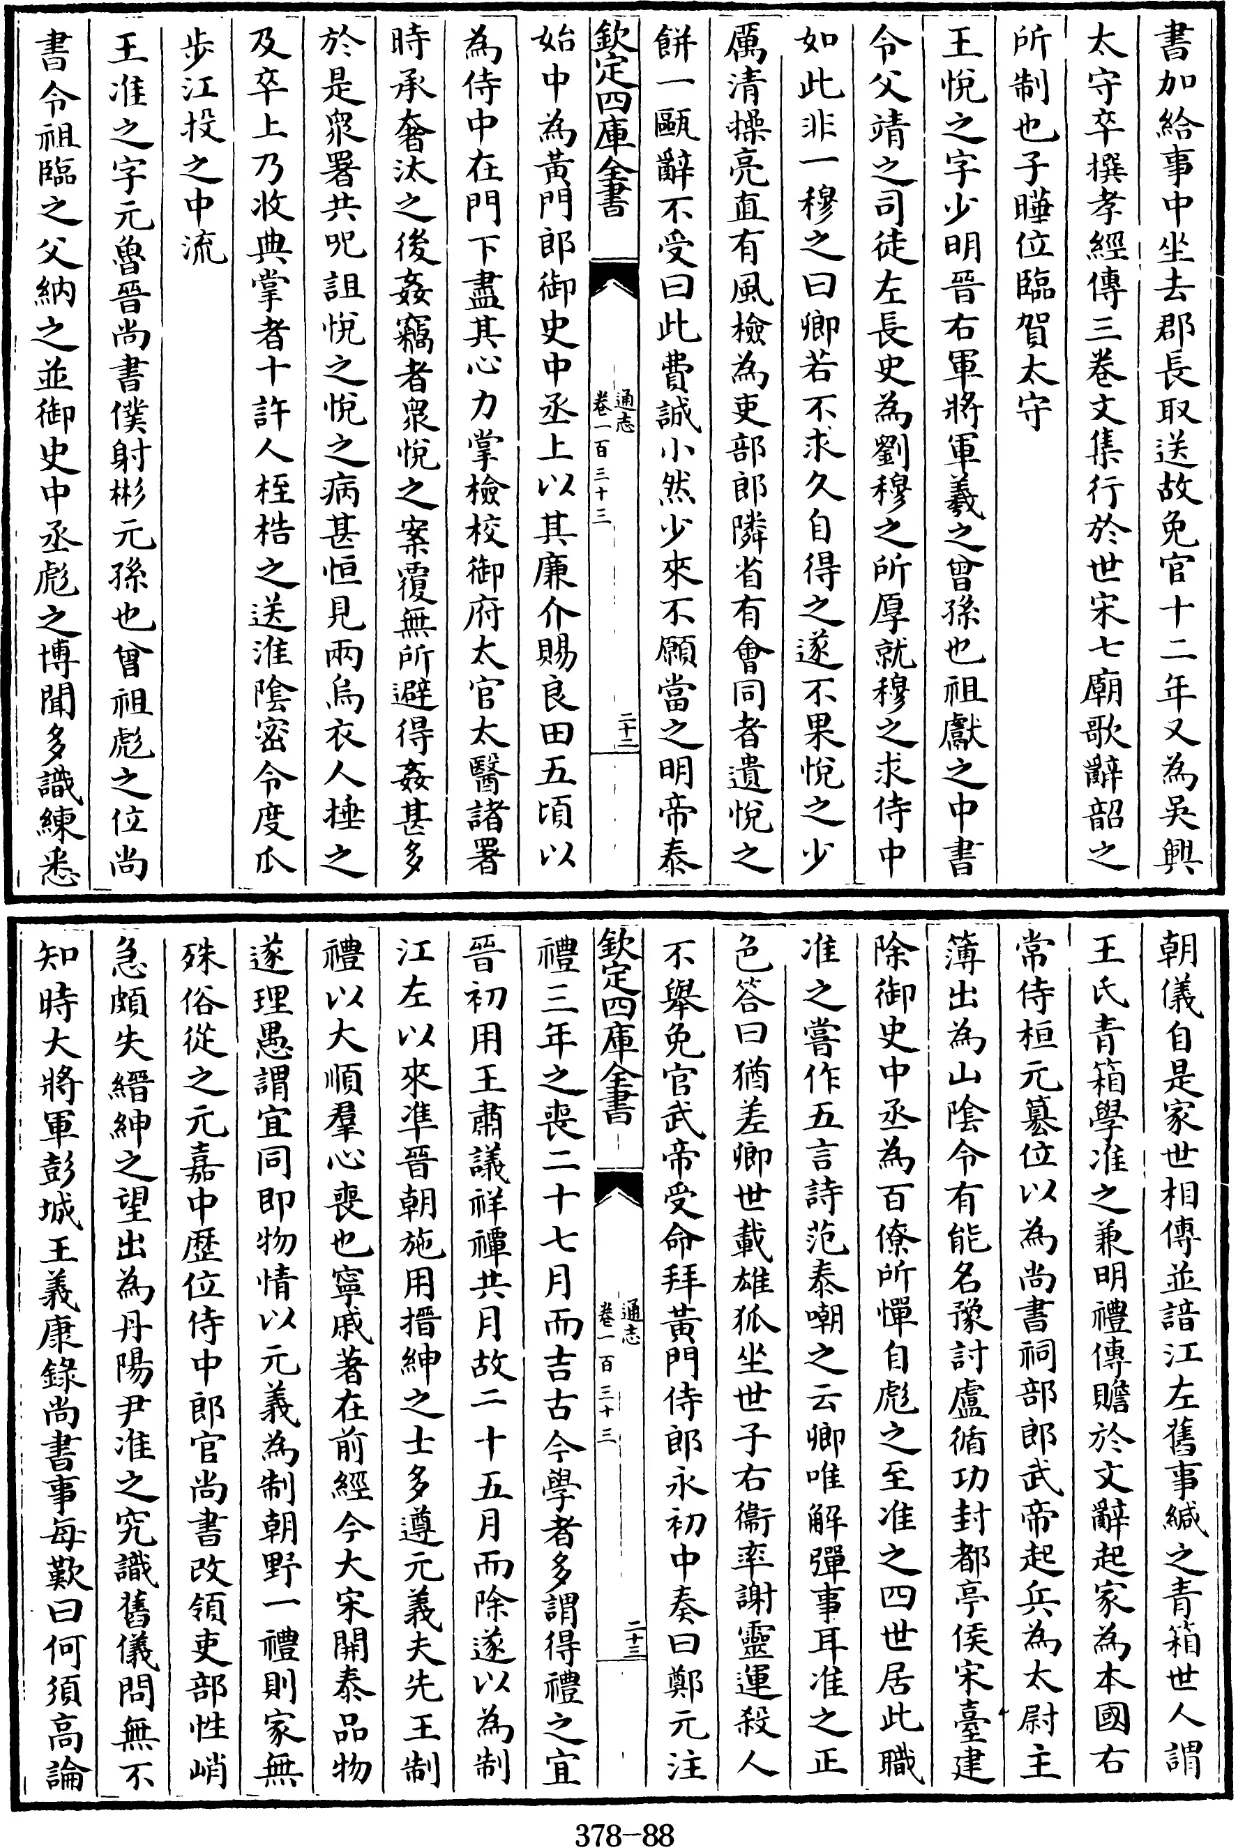 書加給事中坐去郡長取送故免官十二年又為吳興
太守卒撰孝經傳三卷文集行於世宋七廟歌辭韶之
所制也子曄位臨賀太守
王悅之字少明晉右軍將軍羲之曾孫也祖獻之中書
令父靖之司徒左長史為劉穆之所厚就穆之求侍中
如此非一穆之曰卿若不求久自得之遂不果悅之少
厲清操亮直有風檢為吏部郎隣省有會同者遺悅之
餅一甌辭不受曰此費誠小然少來不願當之明帝泰
欽定四庫全書
通志
卷一百三十三
二十二
始中為黃門郎御史中丞上以其廉介賜良田五頃以
為侍中在門下盡其心力掌檢校御府太官太醫諸署
時承奢汰之後姦竊者衆悅之案覆無所避得姦甚多
於是衆署共呪詛悅之悅之病甚恒見兩烏衣人捶之
及卒上乃收典掌者十許人桎梏之送淮陰密令度瓜
步江投之中流
王准之字元魯晉尚書僕射彬元孫也曾祖彪之位尚
書令祖臨之父納之並御史中丞彪之博聞多識練悉
朝儀自是家世相傳並諳江左舊事緘之青箱世人謂
王氏青箱學准之兼明禮傳贍於文辭起家為本國右
常侍桓元篡位以為尚書祠部郎武帝起兵為太尉主
簿出為山陰令有能名豫討盧循功封都亭侯宋臺建
除御史中丞為百僚所憚自彪之至准之四世居此職
准之嘗作五言詩范泰嘲之云卿唯解彈事耳准之正
色答曰猶差卿世載雄狐坐世子右衞率謝靈運殺人
不舉免官武帝受命拜黃門侍郎永初中奏曰鄭元注
欽定四庫全書
通志
卷一百三十三
二十三
禮三年之喪二十七月而吉古今學者多謂得禮之宜
晉初用王肅議祥禫共月故二十五月而除遂以為制
江左以來准晉朝施用搢紳之士多遵元義夫先王制
禮以大順羣心喪也寧戚著在前經今大宋開泰品物
遂理愚謂宜同即物情以元義為制朝野一禮則家無
殊俗從之元嘉中歷位侍中郎官尚書改領吏部性峭
急頗失縉紳之望出為丹陽尹准之究識舊儀問無不
知時大將軍彭城王義康錄尚書事每歎曰何須高論
378-88